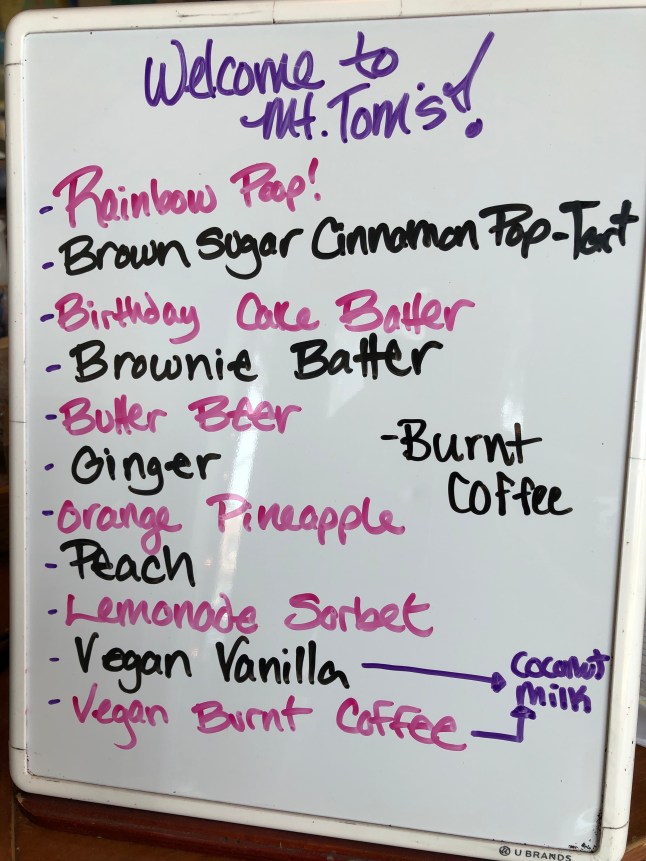 Welcome to
Mt. Tom's!
- Rainbow Poop!
- Brown Sugar Cinnamon Pop-Tart
- Birthday Cake Batter
- Brownie Batter
- Butter Beer
- Ginger
- Orange Pineapple
- Peach
- Lemonade Sorbet
- Vegan Vanilla
- Vegan Burnt Coffee
- Burnt
Coffee
Coconut
Milk
U BRANDS